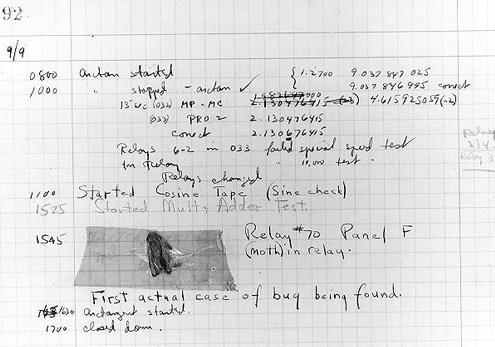 92
9/9
0800 arctan started { 1.2700 9.037 847 025
1000 " stopped - arctan ✓ 9.037 846 995 correct
13"uc (032) MP - MC 2.130476415 (-3) 4.615925059(-2)
(033) PRO 2 2.130476415
correct 2.130676415
Relays 6-2 in 033 failed special speed test
in Relay " 11,000 test .
Relays changed
1100 Started Cosine Tape (Sine check)
1525 Started Mult + Adder Test.
1545 Relay #70 Panel F
(moth) in relay.
First actual case of bug being found.
1630 arctangent started.
1700 closed down .